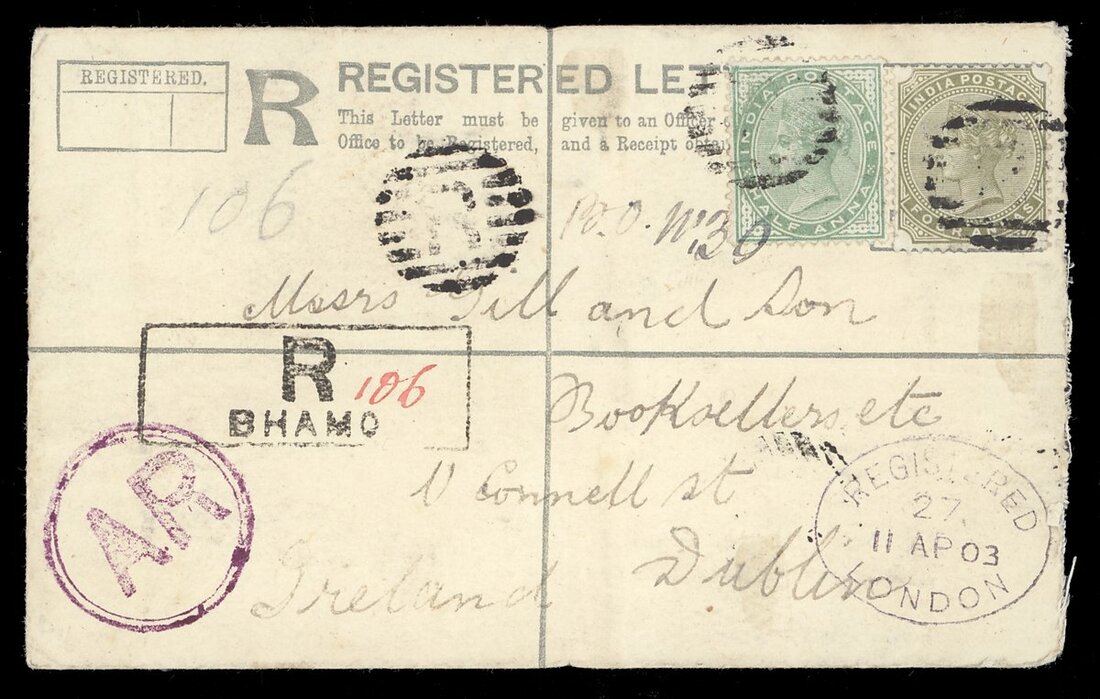 REGISTERED.
R
REGISTERED LET
This Letter must be given to an Officer
Office to be Registered, and a Receipt obta
INDIA POSTAGE
HALF ANNA
INDIA POSTAGE
FOUR ANNAS
106
R
No. 30
Messrs Gill and Son
R 106
BHAMO
Booksellers etc
O Connell st
Dublin
Ireland
AR
REGISTERED
27
11 AP 03
LONDON